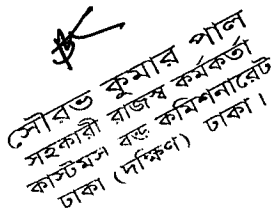 সৌরভ কুমার পাল
সহকারী রাজস্ব কর্মকর্তা
কাস্টমস বন্ড কমিশনারেট
ঢাকা (দক্ষিণ) ঢাকা।